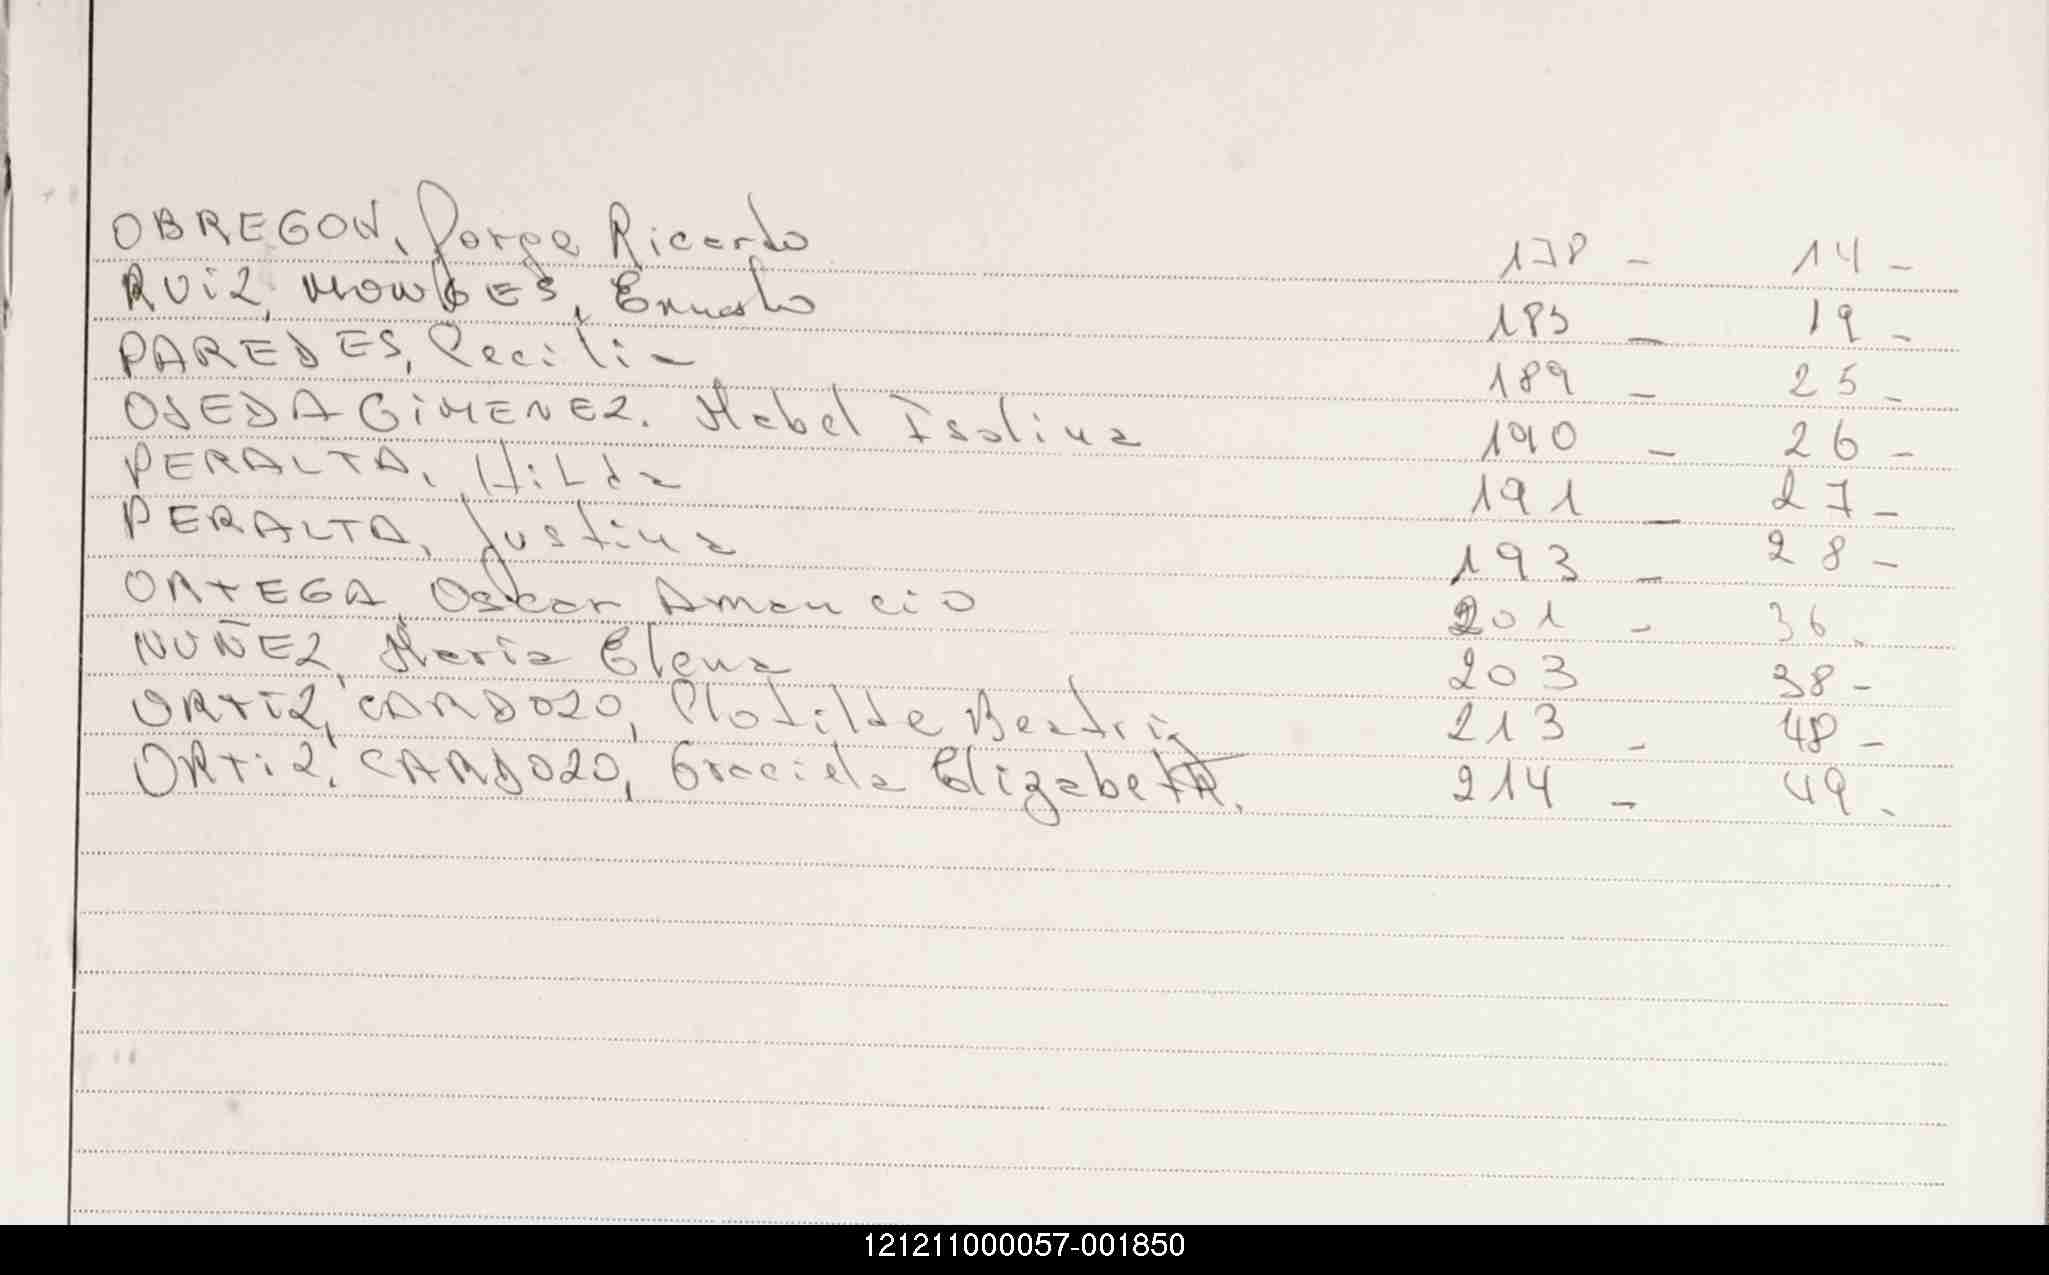 OBREGON, Jorge Ricardo 178 - 14 -
RUiZ, MONGES, Ernesto 183 - 19 -
PAREDES, Cecilia 189 - 25 -
OJEDA GiMENEZ. Mabel Isolina 190 - 26 -
PERALTA, HiLda 191 - 27 -
PERALTA, Justina 193 - 28 -
ORTEGA, Oscar Amancio 201 - 36 -
NUÑEZ, Maria Elena 203 38 -
ORTiZ, CARDOZO, Clotilde Beatriz 213 - 48 -
ORTiZ, CARDOZO, Graciela Elizabeth. 214 - 49 -
121211000057-001850